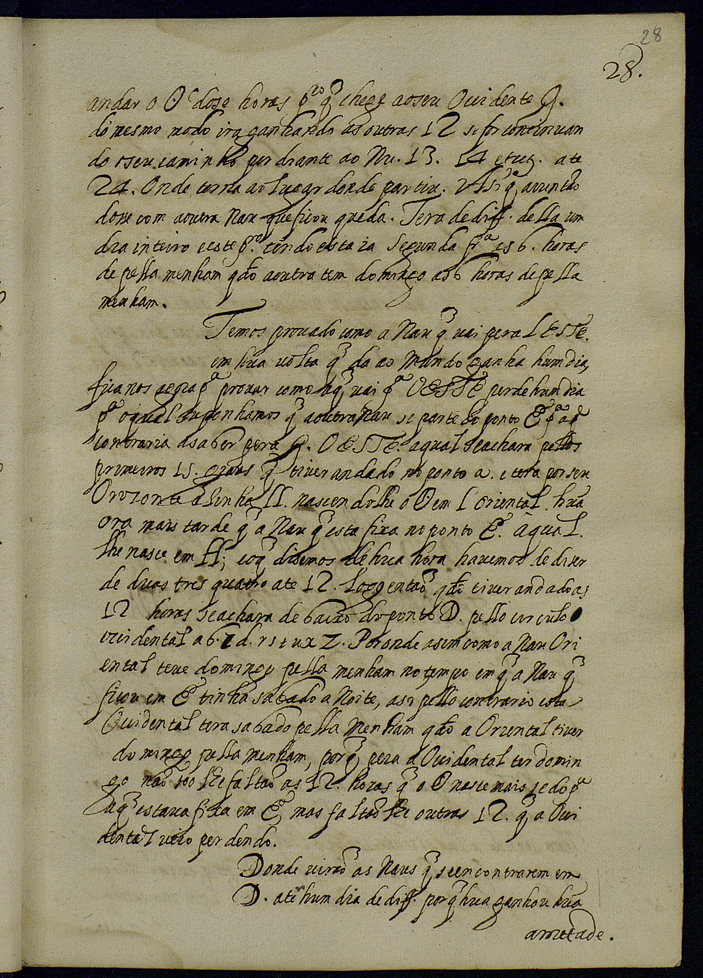 28
28.
andar o O dose horas pro q̃ chege ao seu Ouidente G.
do mesmo modo ira ganhando as outras 12 se for continuan
do o seu caminho por diante ao Nu. 13. 14 etcª. ate
24. Onde torna ao lugar donde partiu. Asi q̃ ajuntão
dose com a outra Nau que ficou queda. Tera de dif. della um
dia inteiro e este pro. sendo esta ia Segunda frª as 6. horas
de pella menham qdo a outra tem domingo as 6 horas de pella
menham.
Temos prouado como a Nau q̃ uai pera LESTE.
em hũa uolta q̃ da ao Mundo ganha hum dia,
fica nos agora pª prouar como a q̃ uai pª OESTE perde hum dia
pª o qual suponhamos q̃ a outra Nau se parte do ponto E pª a pte
contraria a saber pera G. OESTE. a qual se achara pellos
primeiros 15. graos q̃ tiuer andado no ponto a. e tera por seu
Orizonte a linha II. nascendolhe o O em l oriental hũa
ora mais tarde q̃ a Nau q̃ esta fixa no ponto E. a qual.
lhe nasce em ff; e o q̃ disemos de hũa hora hauemos de diser
de duas tres quatro ate 12. Logo entaõ qdo tiuer andado as
12 horas se achara de baixo do ponto D. pello circulo
occidental a b. c d. r s t u x z. Por onde asim como a Nau Ori
ental teue domingo pella menham no tempo em q̃ a Nau q̃
ficou em E tinha sabado a Noite, asi pello contrario esta
Ouidental tera sabado pella Menham qdo a Oriental tiuer
domingo pella menham, porq̃ pera a Ouidental ter domin
go naõ soo lhe faltaõ as 12. horas q̃ o O nasce mais sedo pª
a q̃ estaua fixa em E, mas faltaõ lhe outras 12. q̃ a Oui
dental ueio perdendo.
Donde uiraõ as Naus q̃ se encontrarem em
D. a ter hum dia de dif. porq̃ hũa ganhou hũa
a metade.